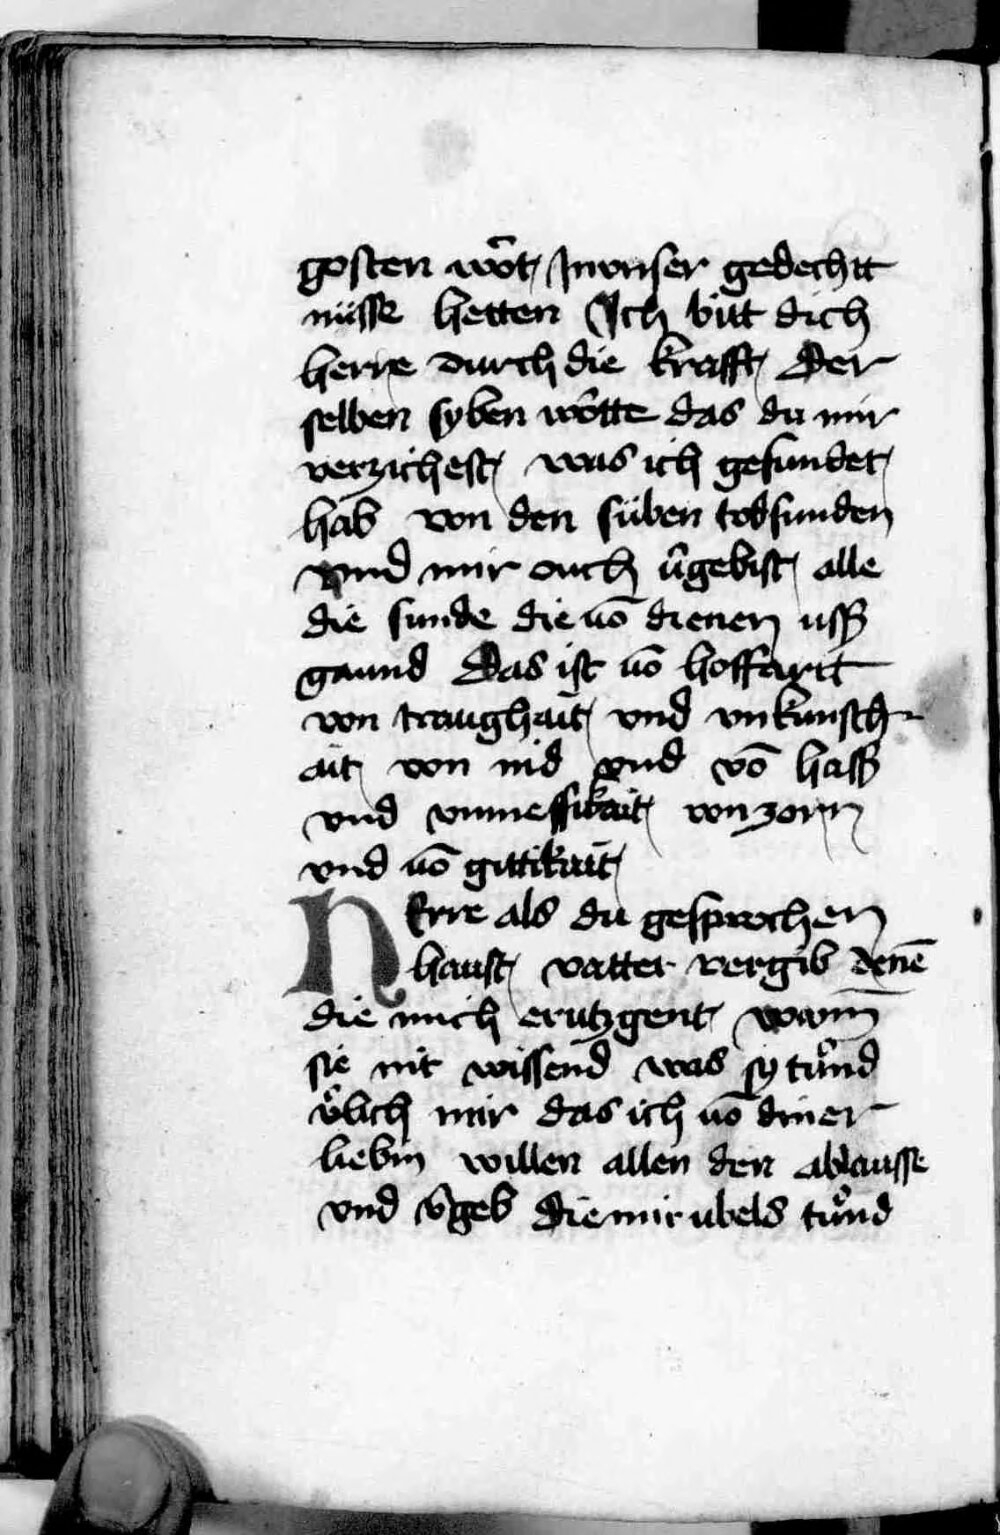 gosten wort Jn vnser gedechtt
nüsse hetten Jch bitt dich
herre durch die krafft Der
selben syben wortte das du mir
verzichest was ich gesundet
hab von den süben todsunden
vnd mir ouch v̂gebist alle
die sunde die uō dienen uſß
gaund Das ist uō hoffartt
von traughait vnd vnkunsch
ait von nid vnd vō haſß
vnd vnmessikait von zorn
vnd uō gittikait
Herre als du gesprochen
haust vatter vergib denē
die mich crutzgent wann̄
sie nit wissend was sy tůnd
v̂lich mir das ich uō diner
liebin willen allen den ablausse
vnd v̂geb Die mir ubels tůnd